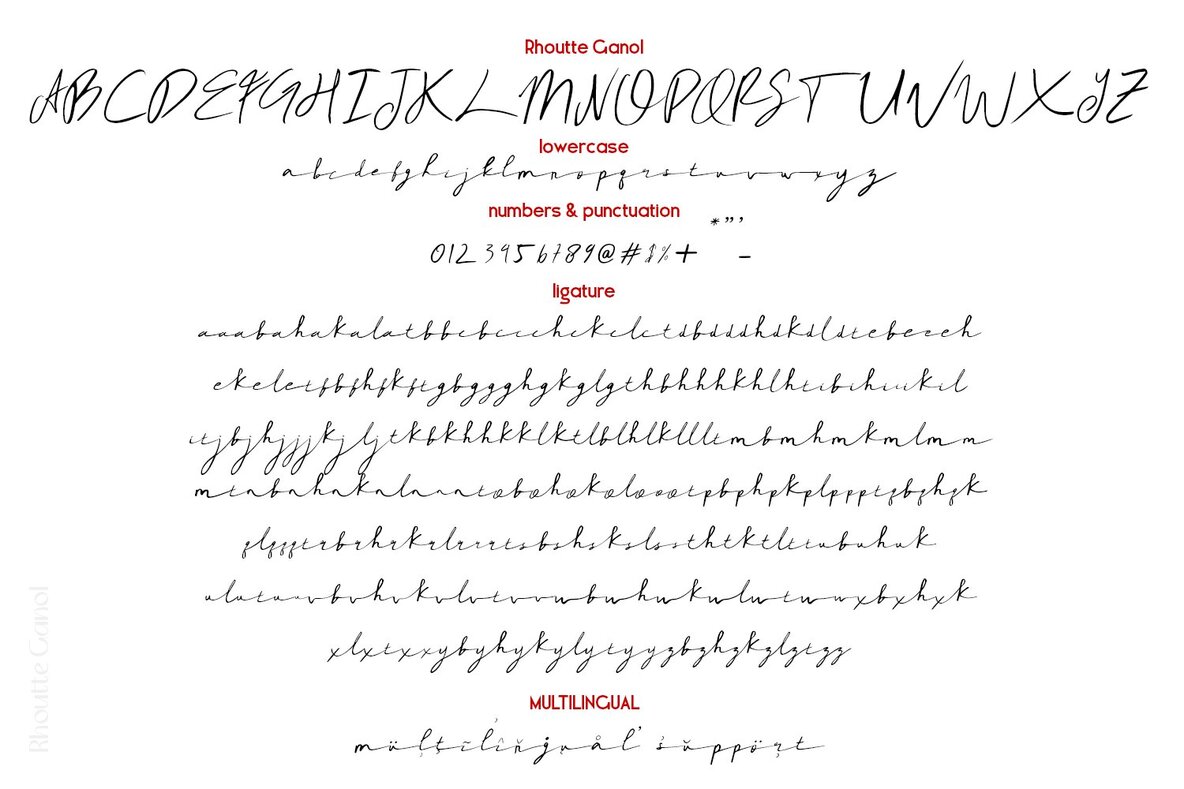 Rhoutte Ganol
ABCDEFGHIJKLMNOPQRSTUVWXYZ
lowercase
abcdefghijklmnopqrstuvwxyz
numbers & punctuation
*”’
0123456789@#$%+ –
ligature
aaabahakalatbbcbccchckclctdbdddhdkdldtebeeeh
ekeletfbfhfkftgbggghgkglgthbhhhkhlhtibihiiikil
itjbjhjjjkjljtkbkhkkklktlblhlkllltmbmhmkmlmm
mtnbnhnknlnnntobohokoloootpbphpkplppptqbqhqk
qlqqqtrbrhrkrlrrrtsbshskslssthtktlttubuhuk
ulutuuvbvhvkvlvtvvwbwhwkwlwtwwxbxhxk
xlxtxxybyhykylytyyzbzhzkzlztzz
MULTILINGUAL
Rhoutte Ganol